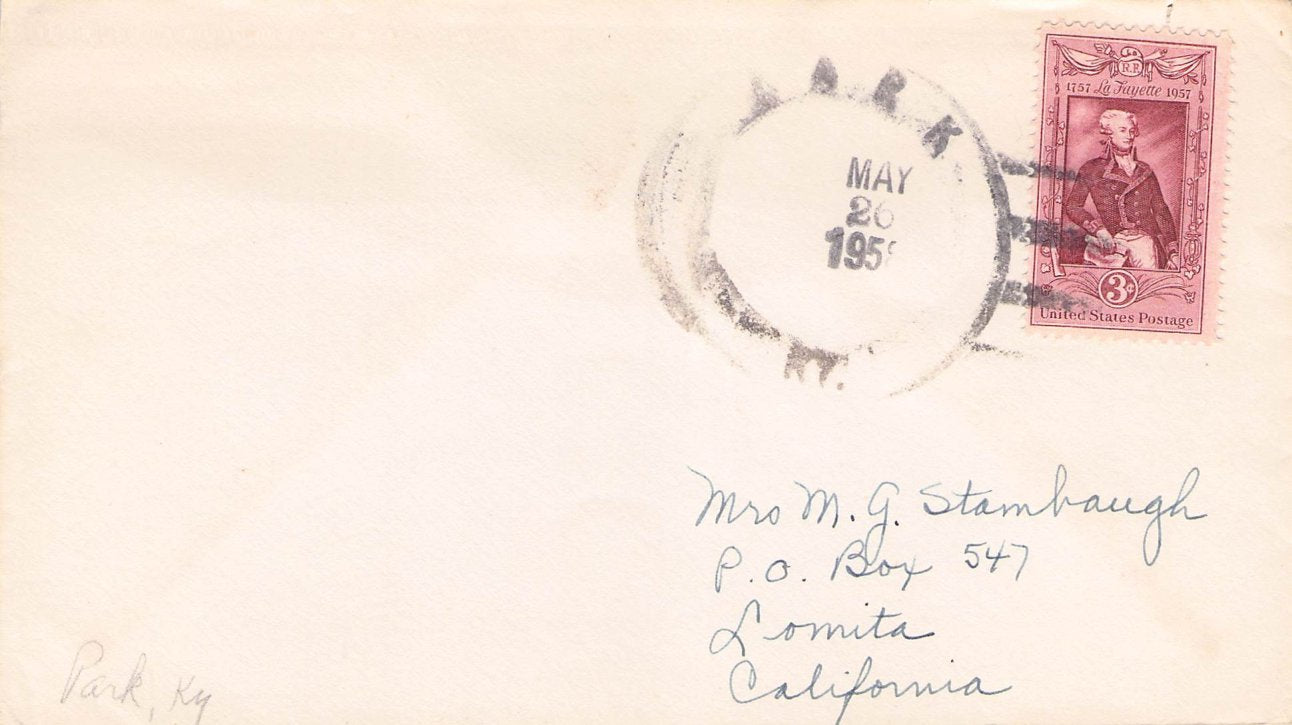 R.F.
1757 La Fayette 1957
3¢
United States Postage
PARK
MAY
26
KY.
Mrs M. G. Stambaugh
P.O. Box 547
Lomita
California
Park, Ky